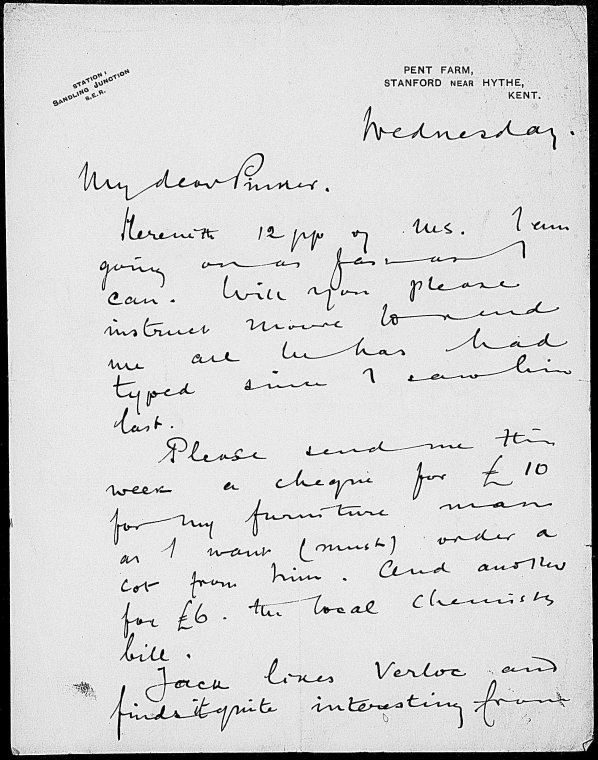 STATION,
SANDLING JUNCTION
S.E.R.
PENT FARM,
STANFORD NEAR HYTHE,
KENT.
Wednesday.
My dear Pinker.
Herewith 12 pp of MS. I am
going on as fast as I
can. Will you please
instruct Moore to send
me all he has had
typed since I saw him
last.
Please send me this
week a cheque for £10
for my furniture man
as I want (must) order a
cot from him. And another
for £6. the local chemists
bill.
Jack likes Verloc and
finds it quite interesting from